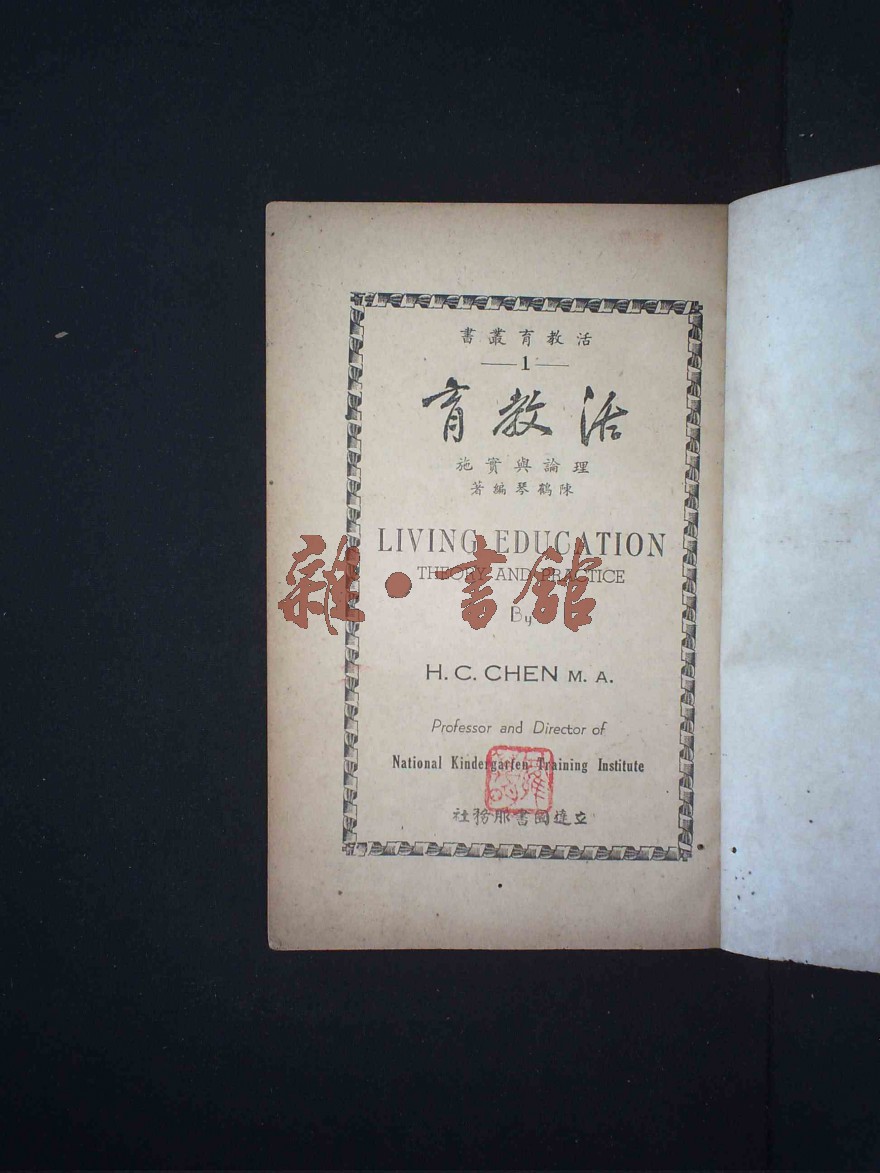 活教育叢書
1
活教育
理論與實施
陳鶴琴編著
LIVING EDUCATION
THEORY AND PRACTICE
雜·書館
By
H. C. CHEN M. A.
Professor and Director of
National Kindergarten Training Institute
立達圖書服務社